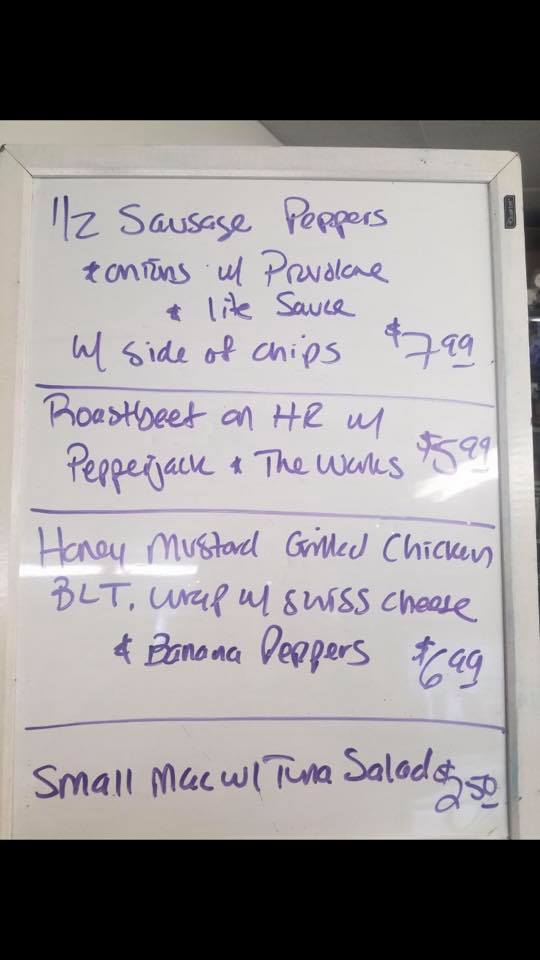 1/2 Sausage Peppers
& onions w/ Provolone
& lite Sauce
w/ side of chips $7.99
Roastbeef on HR w/
Pepperjack & The Works $5.99
Honey Mustard Grilled Chicken
BLT. wrap w/ swiss cheese
& Banana Peppers $6.99
Small Mac w/ Tuna Salad $2.50